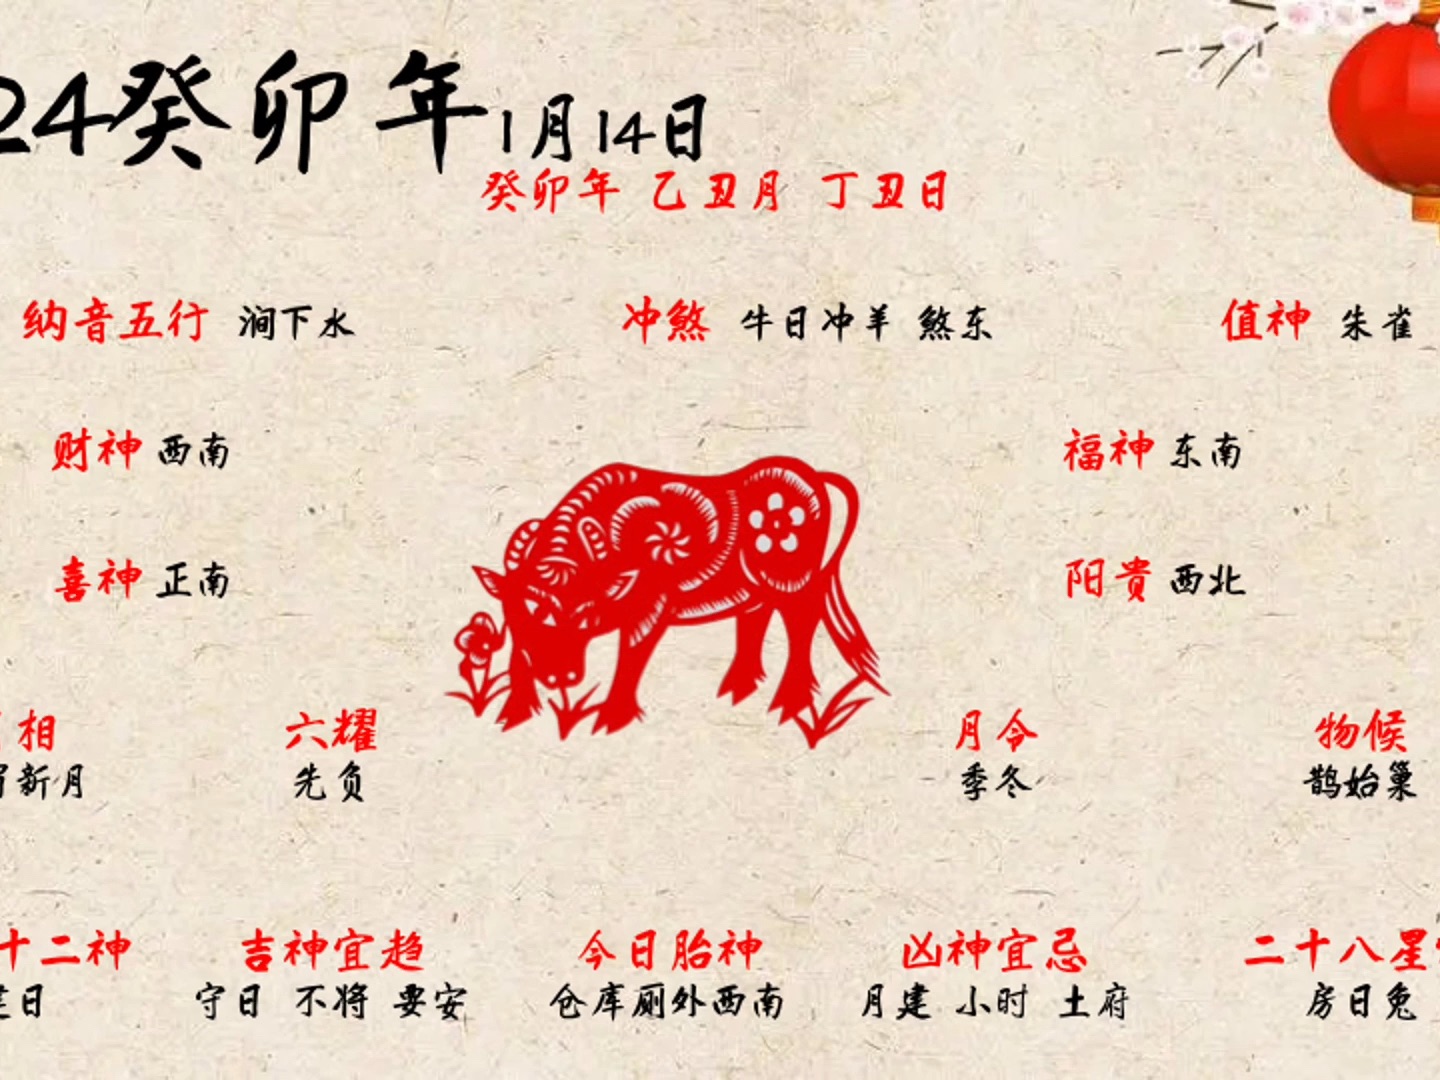 24癸卯年1月14日
癸卯年 乙丑月 丁丑日
纳音五行 涧下水 冲煞 牛日冲羊 煞东 值神 朱雀
财神 西南 福神 东南
喜神 正南 阳贵 西北
相 六耀 月令 物候
新月 先负 季冬 鹊始巢
十二神 吉神宜趋 今日胎神 凶神宜忌 二十八星
日 守日 不将 要安 仓库厕外西南 月建 小时 土府 房日兔